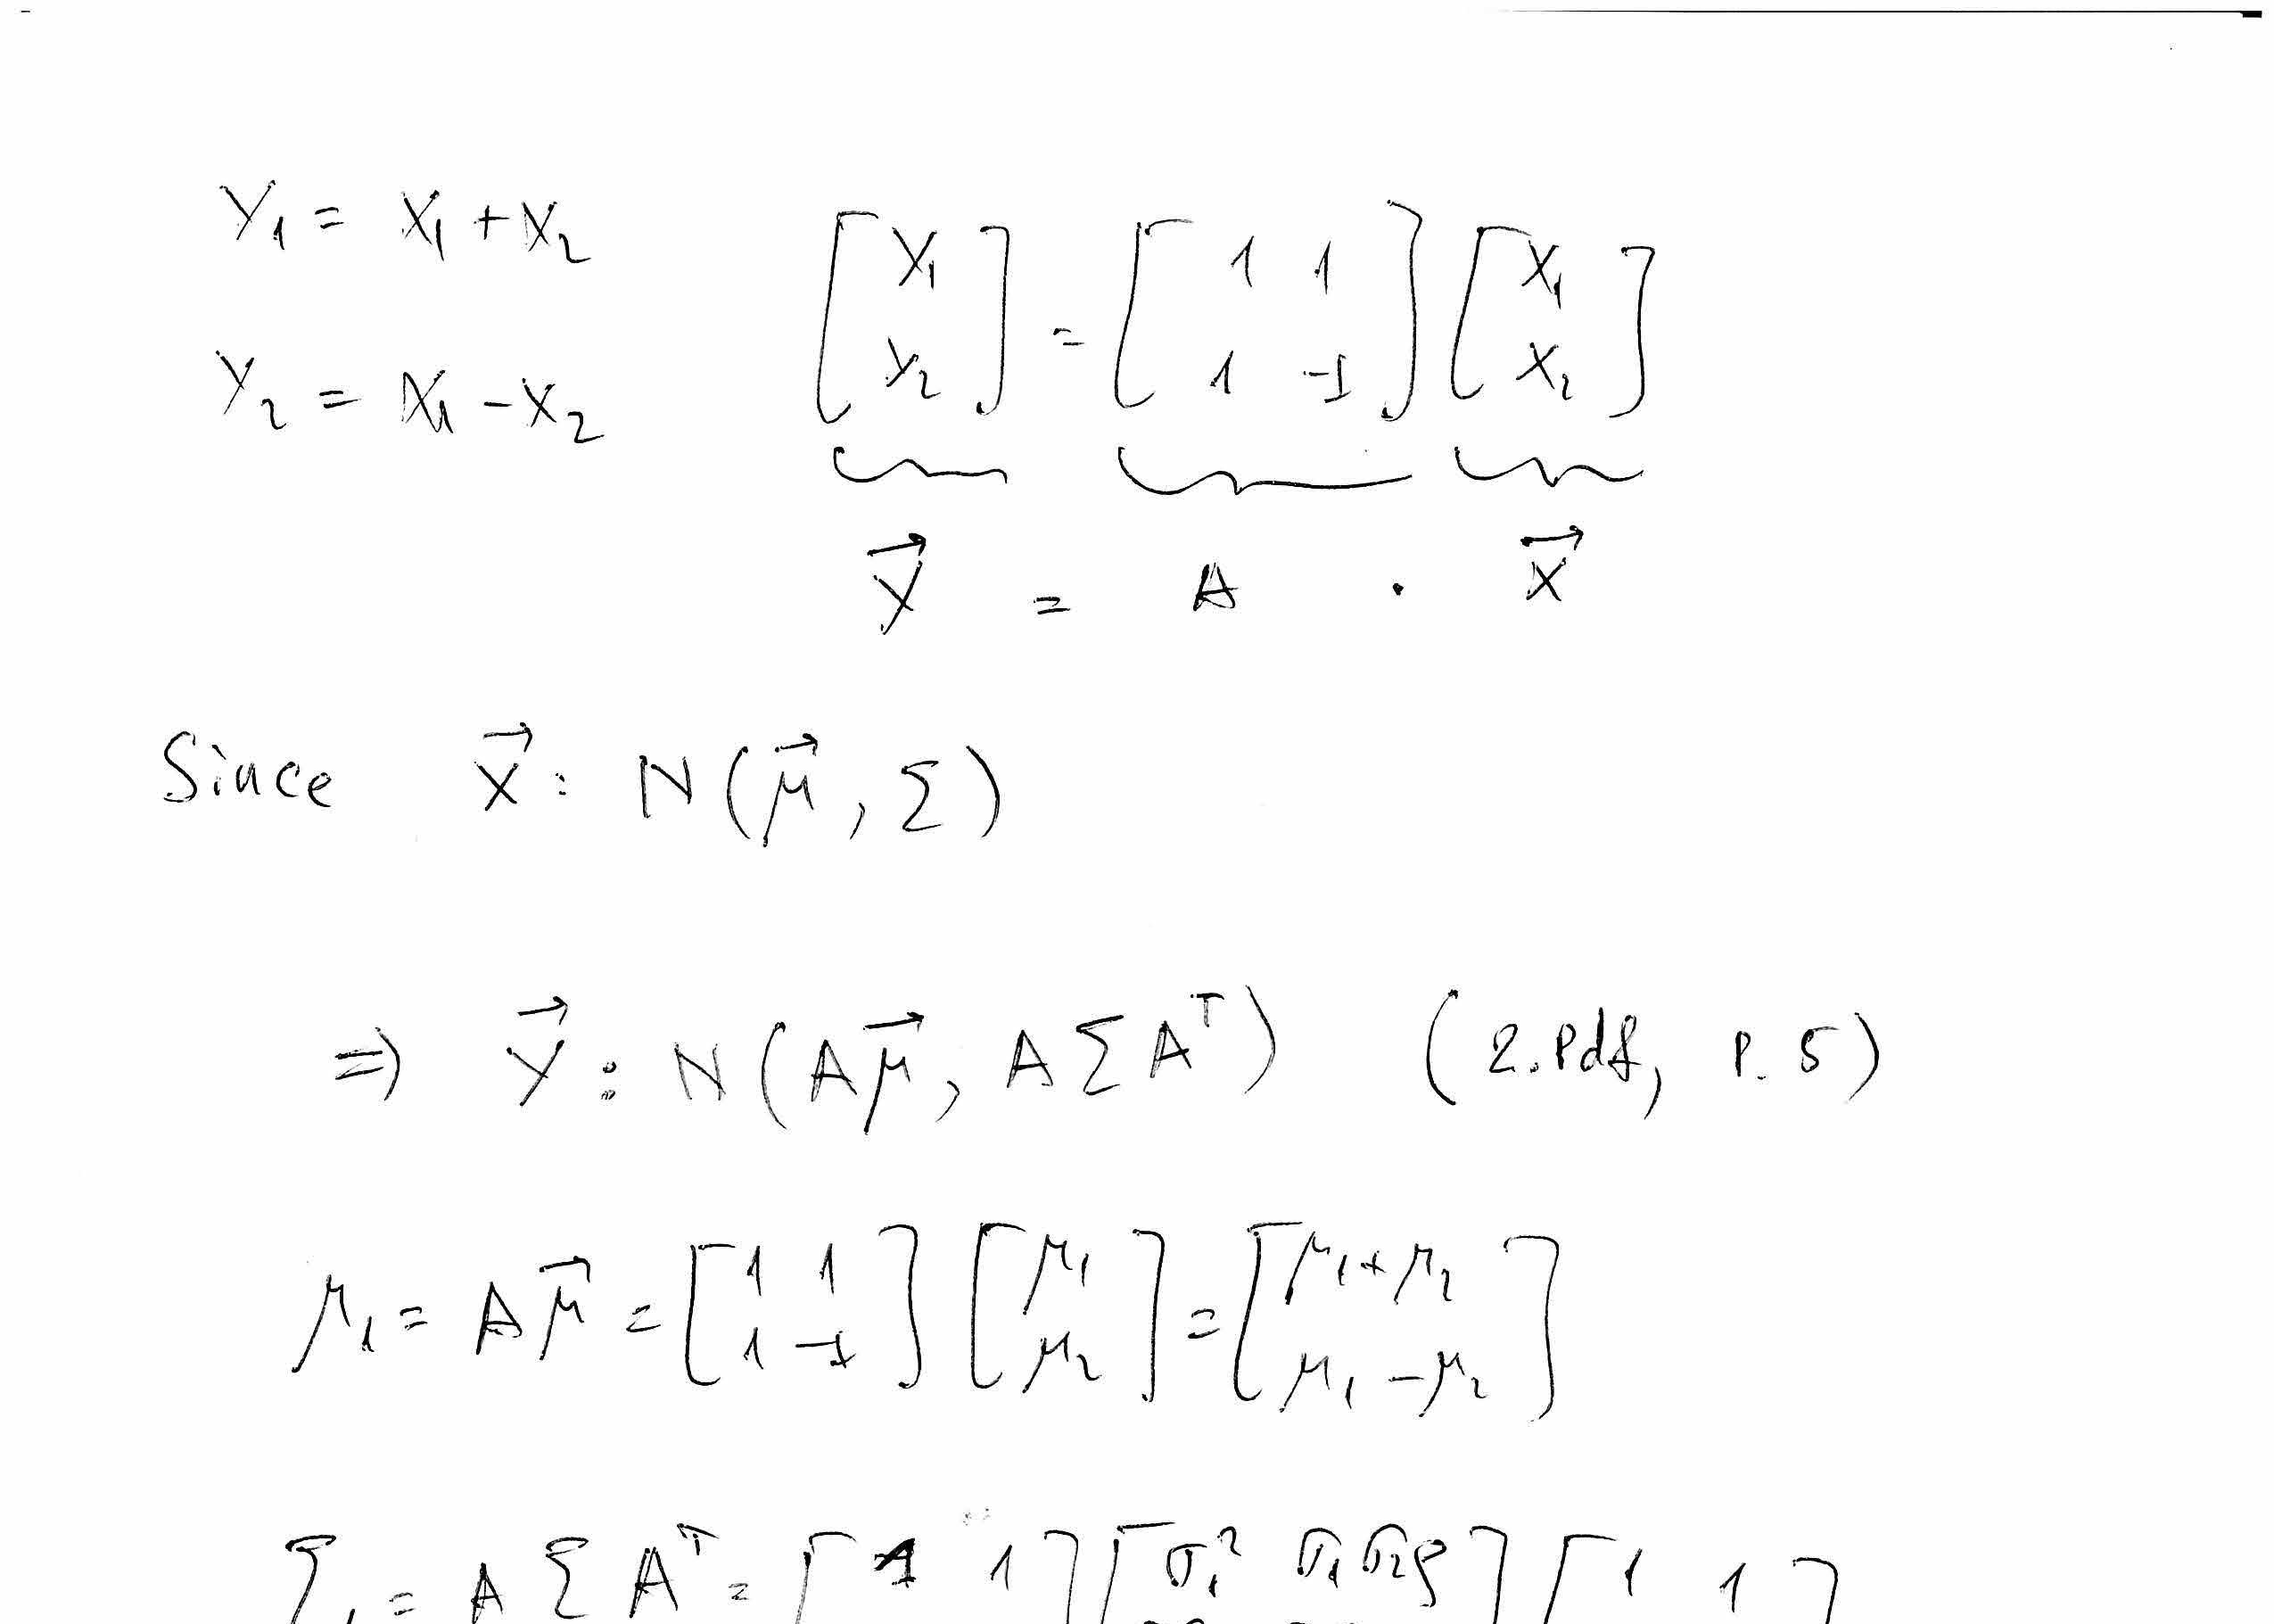 Y₁ = X₁ + X₂
Y₂ = X₁ - X₂
[Y₁; Y₂] = [1 1; 1 -1] [X₁; X₂]
Y⃗ = A · X⃗
Since X⃗ : N(μ⃗, Σ)
=> Y⃗ : N(Aμ⃗, AΣAᵀ) (2.pdf, p. 5)
μ₁ = Aμ⃗ = [1 1; 1 -1] [μ₁; μ₂] = [μ₁+μ₂; μ₁-μ₂]
Σ₁ = A Σ Aᵀ = [1 1] [σ₁² σ₁σ₂ρ] [1 1]